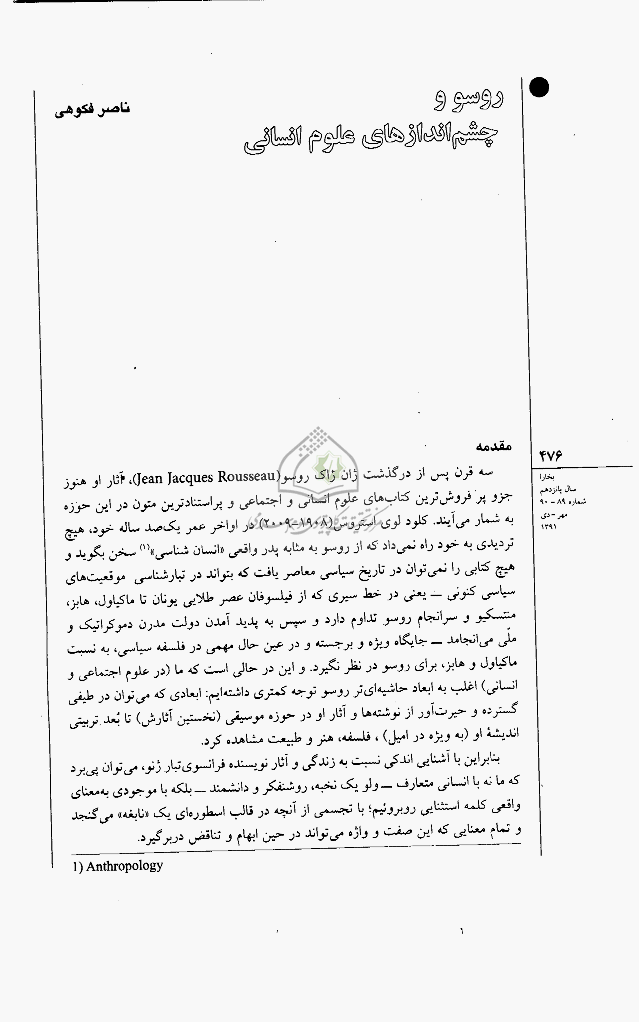 روسو و
چشم‌اندازهای علوم انسانی
ناصر فکوهی
۴۷۶
بخارا
سال پانزدهم
شماره ۸۹ – ۹۰
مهر – دی
۱۳۹۱
مقدمه
سه قرن پس از درگذشت ژان ژاک روسو(Jean Jacques Rousseau)، آثار او هنوز
جزو پر فروش‌ترین کتاب‌های علوم انسانی و اجتماعی و پراستنادترین متون در این حوزه
به شمار می‌آیند. کلود لوی استروس(۱۹۰۸–۲۰۰۹) در اواخر عمر یک‌صد ساله خود، هیچ
تردیدی به خود راه نمی‌داد که از روسو به مثابه پدر واقعی «انسان شناسی»(۱) سخن بگوید و
هیچ کتابی را نمی‌توان در تاریخ سیاسی معاصر یافت که بتواند در تبارشناسی موقعیت‌های
سیاسی کنونی ــ یعنی در خط سیری که از فیلسوفان عصر طلایی یونان تا ماکیاول، هابز،
منتسکیو و سرانجام روسو تداوم دارد و سپس به پدید آمدن دولت مدرن دموکراتیک و
ملّی می‌انجامد ــ جایگاه ویژه و برجسته و در عین حال مهمی در فلسفه سیاسی، به نسبت
ماکیاول و هابز، برای روسو در نظر نگیرد. و این در حالی است که ما (در علوم اجتماعی و
انسانی) اغلب به ابعاد حاشیه‌ای‌تر روسو توجه کمتری داشته‌ایم: ابعادی که می‌توان در طیفی
گسترده و حیرت‌آور از نوشته‌ها و آثار او در حوزه موسیقی (نخستین آثارش) تا بُعد تربیتی
اندیشهٔ او (به ویژه در امیل) ، فلسفه، هنر و طبیعت مشاهده کرد.
بنابراین با آشنایی اندکی نسبت به زندگی و آثار نویسنده فرانسوی‌تبار ژنو، می‌توان پی‌برد
که ما نه با انسانی متعارف ــ ولو یک نخبه، روشنفکر و دانشمند ــ بلکه با موجودی به‌معنای
واقعی کلمه استثنایی روبروئیم؛ با تجسمی از آنچه در قالب اسطوره‌ای یک «نابغه» می‌گنجد
و تمام معنایی که این صفت و واژه می‌تواند در حین ابهام و تناقض دربرگیرد.
1) Anthropology
۱